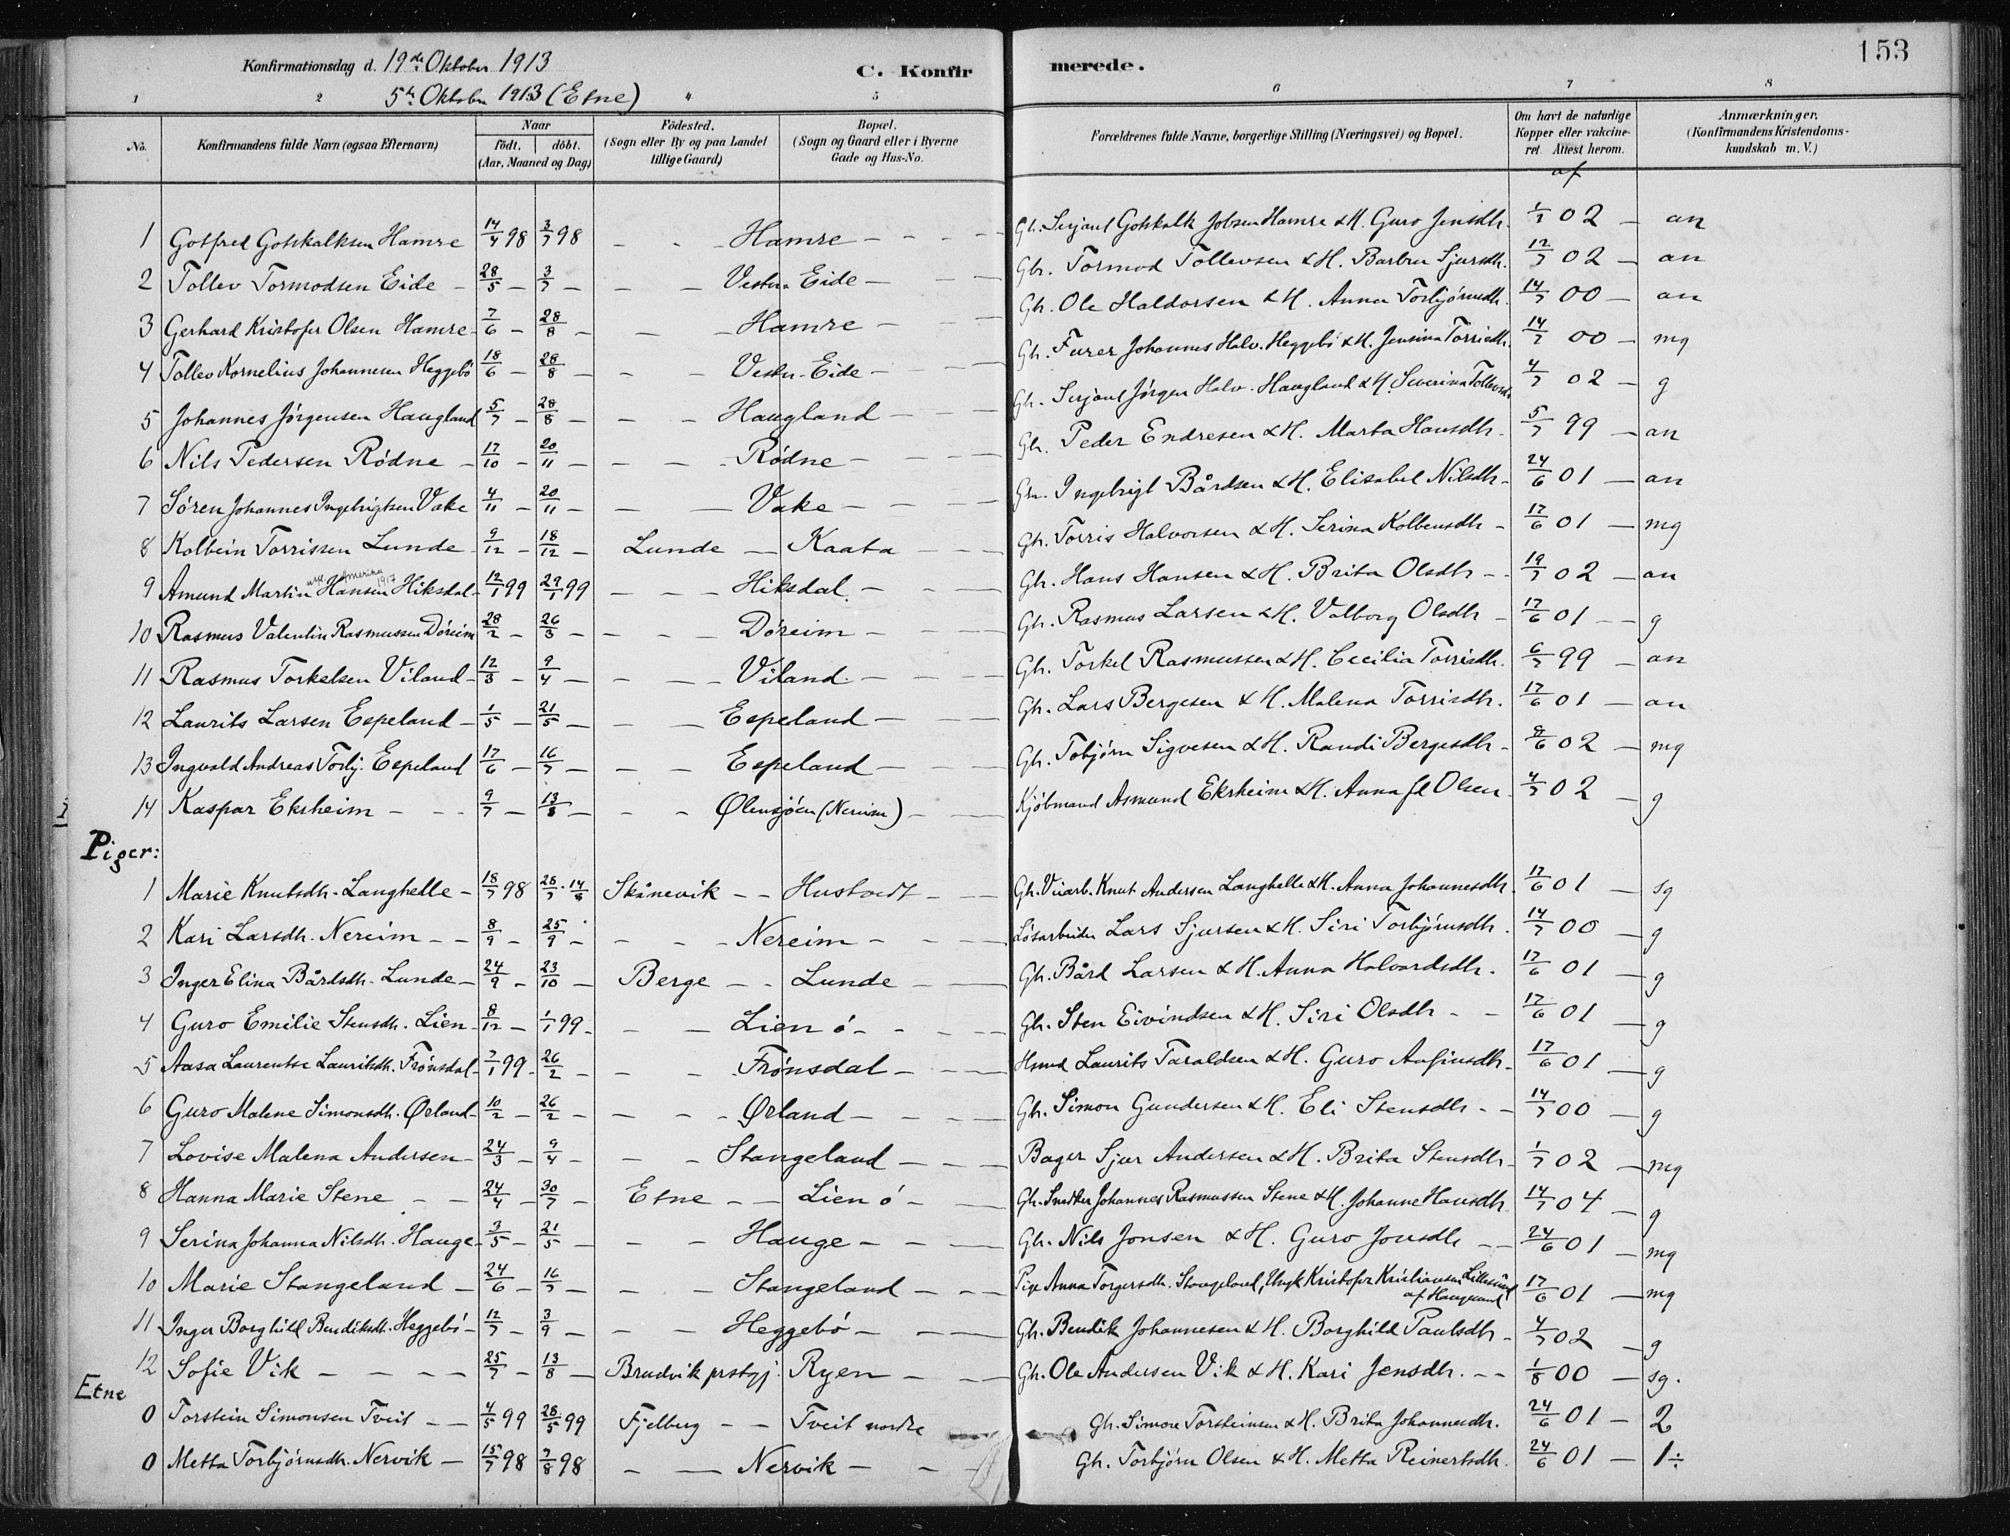 153
Konfirmationsdag d. 19de Oktober 1913
5te Oktober 1913 (Etne)
C. Konfirmerede.
1 2 4 5 6 7 8
No. Konfirmandens fulde Navn (ogsaa Efternavn) Naar födt. döbt. (Aar, Maaned og Dag) Födested. (Sogn eller By og paa Landet tillige Gaard) Bopæl. (Sogn og Gaard eller i Byerne Gade og Hus-No. Forældrenes fulde Navne, borgerlige Stilling (Næringsvei) og Bopæl. Om havt de naturlige Kopper eller vakcineret Attest herom. af Anmærkninger. (Konfirmandens Kristendomskundskab m. V.)
1 Gotfred Gotskalksen Hamre 14/4 98 3/7 98 - - - Hamre - - - Gbr. Serjant Gotskalk Jobsen Hamre & H. Guro Jensdtr. 1/7 02 - an
2 Tollev Tormodsen Eide - 28/5 - 3/7 - - - Vestre Eide - - - Gbr. Tormod Tollevsen & H. Barbru Sjursdtr. 12/7 02 - an
3 Gerhard Kristofer Olsen Hamre - 7/6 - 28/8 - - - Hamre - - - Gbr. Ole Haldorsen & H. Anna Torbjørnsdtr. 14/7 00 - an
4 Tollev Kornelius Johannesen Heggebö 18/6 - 28/8 - - - Vestre Eide - - - Gbr. Furer Johannes Halv. Heggebö & H. Jensina Torrisdtr. 14/7 00 - mg
5 Johannes Jørgensen Haugland 5/7 - 28/8 - - - Haugland - - - Gbr. Serjant Jørgen Halv. Haugland & H. Severina Tollevsd. 4/7 02 - g
6 Nils Pedersen Rödne - 17/10 - 20/11 - - - Rödne - - - Gbr. Peder Endresen & H. Marta Hansdtr. 5/7 99 - an
7 Sören Johannes Ingebrigtsen Vake 4/11 - 20/11 - - - Vake - - - Gbr. Ingebrigt Bårdsen & H. Elisabet Nilsdtr. 24/6 01 - an
8 Kolbein Torrissen Lunde - 9/12 - 18/12 - Lunde - Kaata - - Gbr. Torris Halvorsen & H. Serina Kolbensdtr - 17/6 01 - mg
9 Amund Martin Hansen Hiksdal - 12/1 99 29/1 99 - - - Hiksdal. - - - Gbr. Hans Hansen & H. Brita Olsdtr - - 19/7 02 - an
Amerika 1917
10 Rasmus Valentin Rasmussen Döreim 28/2 - 26/3 - - - - Döreim - - - Gbr. Rasmus Larsen & H. Valborg Olsdtr - 17/6 01 - - g
11 Rasmus Torkelsen Viland - 12/3 - 9/4 - - - Viland. - - - Gbr. Torkel Rasmussen & H. Cecilia Torrisdtr. 6/7 99 - an
12 Laurits Larsen Espeland - 1/5 - 21/5 - - - Espeland - - - Gbr. Lars Bergesen & H. Malena Torrisdtr. 17/6 01 - an
13 Ingvald Andreas Torbj. Espeland 17/6 - 16/7 - - - Espeland - - - Gbr. Tobjørn Sigvesen & H. Randi Bergesdtr - 9/6 02 - mg
14 Kaspar Eksheim - - - 9/7 - 13/8 - - - Ølensjöen (Nereim) - - Kjöbmand Asmund Eksheim & H. Anna f. Olsen - 4/7 02 - g
Piger:
1 Marie Knutsdtr. Langhelle - 18/7 98 28/7 · 14/8 Skånevik - - Hustoedt - - Gbr. Veiarb. Knut Andersen Langhelle & H. Anna Johannesdtr. 17/6 01 - sg
2 Kari Larsdtr. Nereim - - 8/9 - 25/9 - - - Nereim - - - Lösarbeider Lars Sjursen & H. Siri Torbjörnsdtr. 14/7 00 - g
3 Inger Elina Bårdsdtr. Lunde - 24/9 - 23/10 Berge - - Lunde - - Gbr. Bård Larsen & H. Anna Halvardsdtr. 17/6 01 - g
4 Guro Emilie Stensdtr. Lien - 8/12 - 1/1 99 - - - Lien ö - - - Gbr. Sten Eivindsen & H. Siri Olsdtr - - 17/6 01 - g
5 Aasa Laurentse Lauritsdtr. Frönsdal - 7/1 99 - 26/2 - - Frönsdal - - - Hsmd Laurits Taraldsen & H. Guro Anfinsdtr. 17/6 01 - g
6 Guro Malene Simonsdtr. Ørland - 10/2 - 26/2 - - - Ørland - - - Gbr. Simon Gundersen & H. Eli Stensdtr - - 14/7 00 - g
7 Lovise Malena Andersen - 24/3 - 9/4 - - - Stangeland - - - Bager Sjur Andersen & H. Brita Stensdtr - 1/7 02 - mg
8 Hanna Marie Stene - - 24/4 - 30/7 - Etne - - Lien ö - - Gbr. Snedker Johannes Rasmussen Stene & H. Johanne Hansdtr 14/7 04 - g
9 Serina Johanna Nilsdtr. Hauge - 3/5 - 21/5 - - - Hauge - - - Gbr. Nils Jonsen & H. Guro Jonsdtr - - 24/6 01 - mg
10 Marie Stangeland - 24/6 - 16/7 - - - Stangeland - - - Pige Anna Torgersdtr. Stangeland, Ungk. Kristofer Kristiansen Lillesund af Haugesund 17/6 01 - mg
11 Inger Borghild Bendiksdtr. Heggebö - 12/7 - 3/9 - - - Heggebö - - - Gbr. Bendik Johannesen & H. Borghild Paulsdtr - 4/7 02 - g
12 Sofie Vik - - - - 25/7 - 13/8 - Brudvik prstgj. Ryen - - - Gbr. Ole Andersen Vik & H. Kari Jensdtr. - - 1/8 00 - sg.
Etne
0 Torstein Simonsen Tveit - - 4/5 99 28/5 99 Fjelberg - - Tveit nordre Gbr. Simon Torsteinsen & H. Brita Johannesdtr. 24/6 01 - 2
0 Metta Torbjörnsdtr. Nervik - 15/7 98 7/8 98 - - Nervik - - - Gbr. Torbjörn Olsen & H. Metta Reinertsdtr. 24/6 01 - 1÷